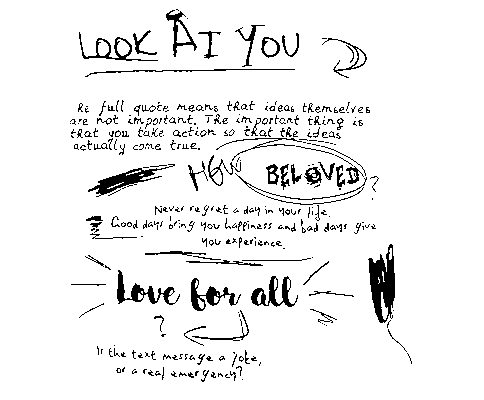 LOOK AT YOU
He full quote means that ideas themselves
are not important. The important thing is
that you take action so that the ideas
actually come true.
HOW BELOVED ?
Never regret a day in your life.
Good days bring you happiness and bad days give
you experience.
Love for all
?
Is the text message a joke,
or a real emergency?